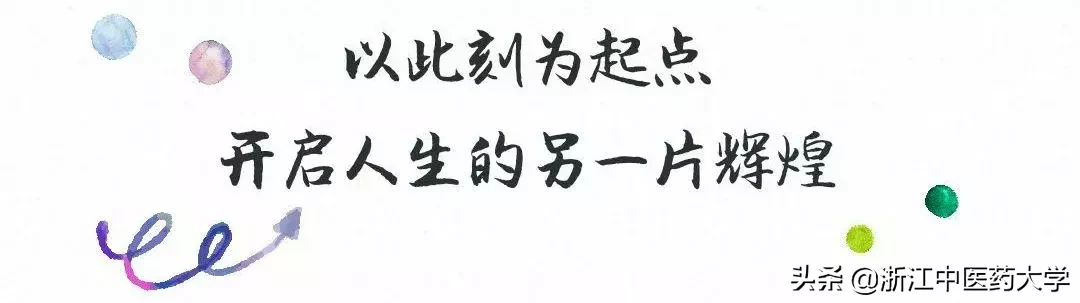 以此刻为起点
开启人生的另一片辉煌
头条 @浙江中医药大学